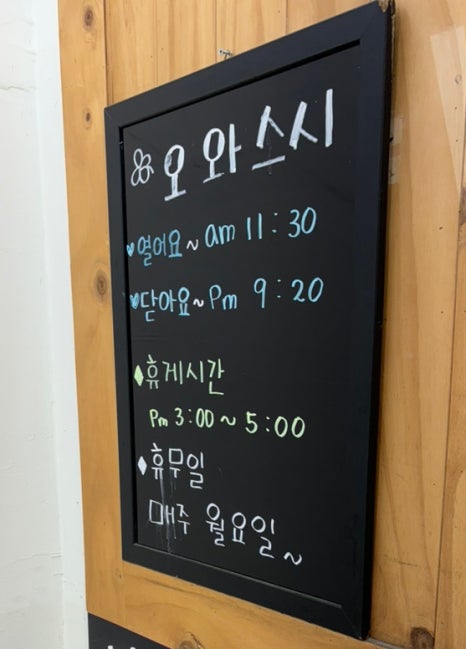 오 와 스시
열어요~ am 11:30
닫아요~ Pm 9:20
휴게시간
Pm 3:00 ~ 5:00
휴무일
매주 월요일~